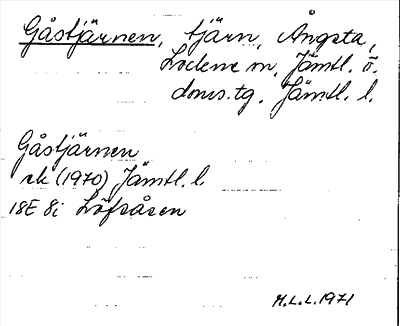 Gåstjärnen, tjärn, Ångsta,
Lockne sn, Jämtl. ö.
doms.tg. Jämtl. l.
Gåstjärnen
rk (1970) Jämtl. l.
18E 8i Löfsåsen
M.L.L. 1971